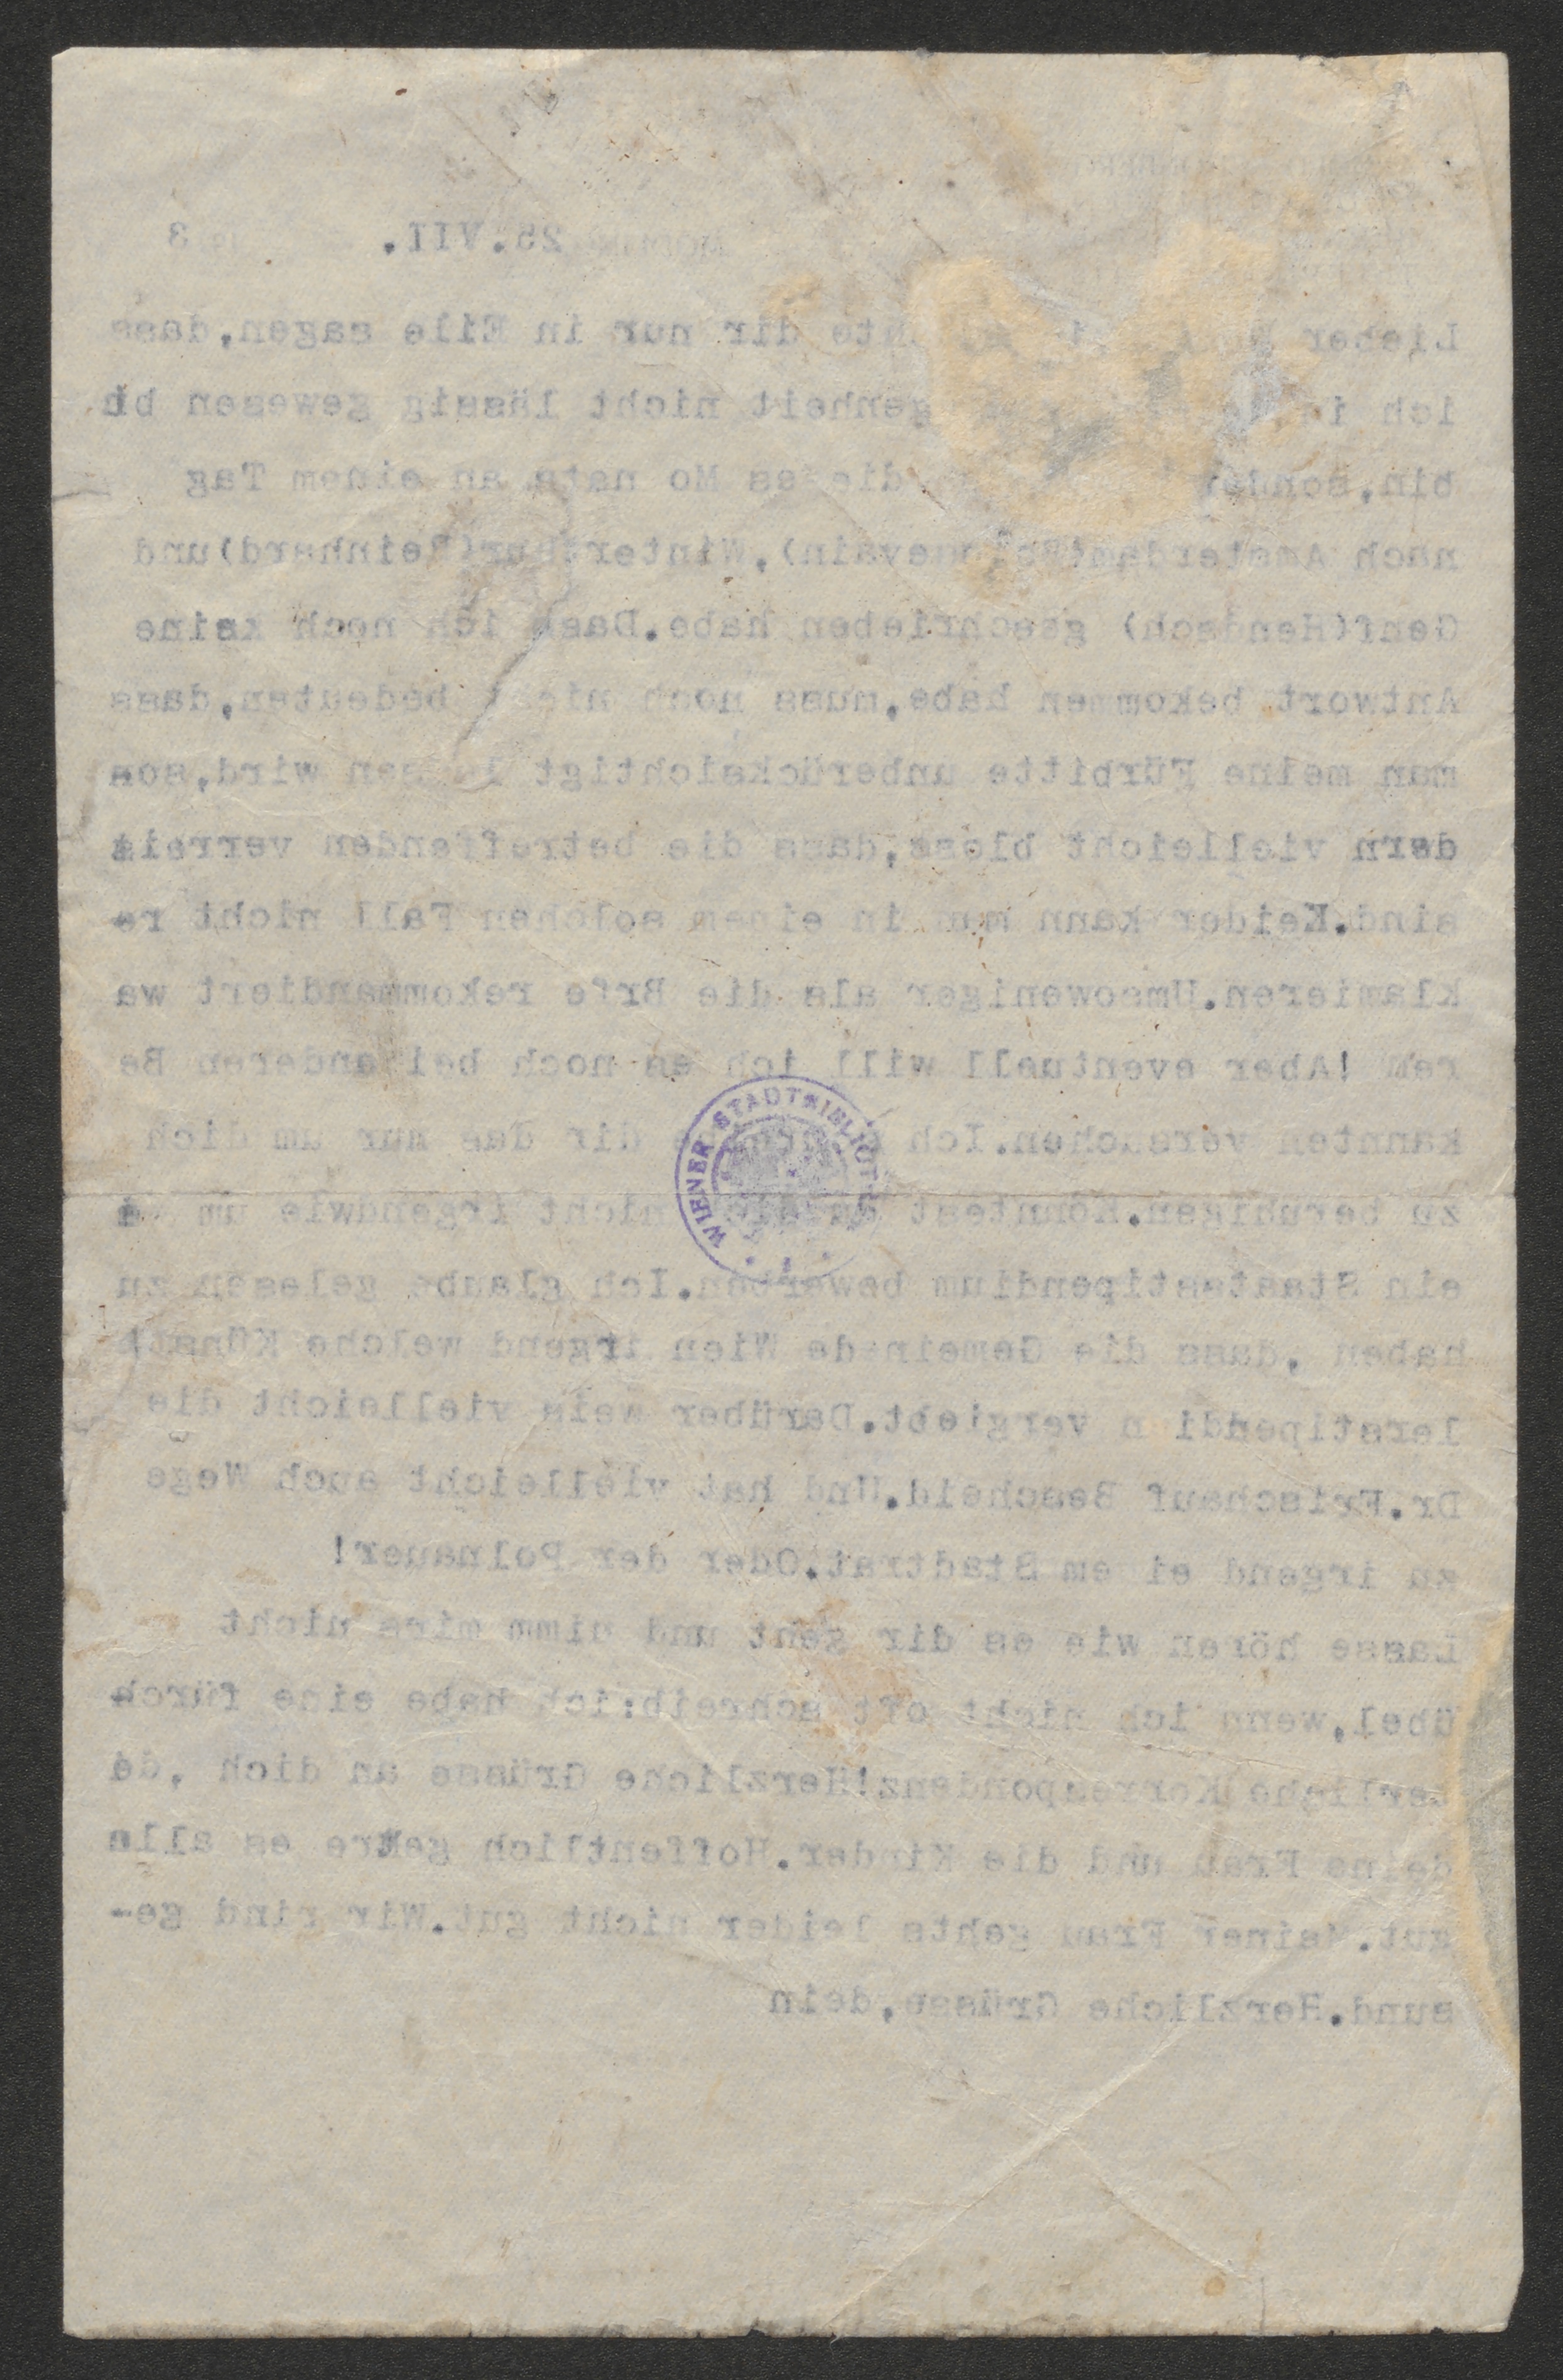 25.VII. 3
Lieber dir nur in Eile sagen,dass
ich in genheit nicht lässig gewesen bi
bin, die es Mo nats an einem Tag
nach Amsterdam und
Genf(Hendsch) geschrieben habe.Dass ich noch keine
Antwort bekommen habe,muss noch nicht bedeuten,dass
man meine Fürbitte unberücksichtigt lassen wird,son
dern vielleicht bloss,dass die betreffenden verreist
sind.Keider kann man in einem solchen Fall nicht re-
klamieren.Umsoweniger als die Brfe rekommandiert wa
ren !Aber eventuell will ich es noch bei anderen Be
kannten versuchen.Ich dir das nur um dich
zu beruhigen.Könntest du nicht irgendwie um
ein Staatsstipendium bewerben.Ich glaube gelesen zu
haben ,dass die Gemeinde Wien irgend welche Künst
lerstipendi n vergiebt.Darüber weis vielleicht die
Dr.Frischauf Bescheid.Und hat vielleicht auch Wege
zu irgend ei em Stadtrat.Oder der Polnauer!
Lasse hören wie es dir geht und nimm mirs nicht
übel,wenn ich nicht oft schreib:ich habe eine fürch
terliche Korrespondenz!Herzliche Grüsse an dich ,de
deine Frau und die Kinder.Hoffentlich es alle
gut.Meiner Frau gehts leider nicht gut.Wir rind ge-
sund.Herzliche Grüsse,dein
WIENER STADTBIBLIOTHEK